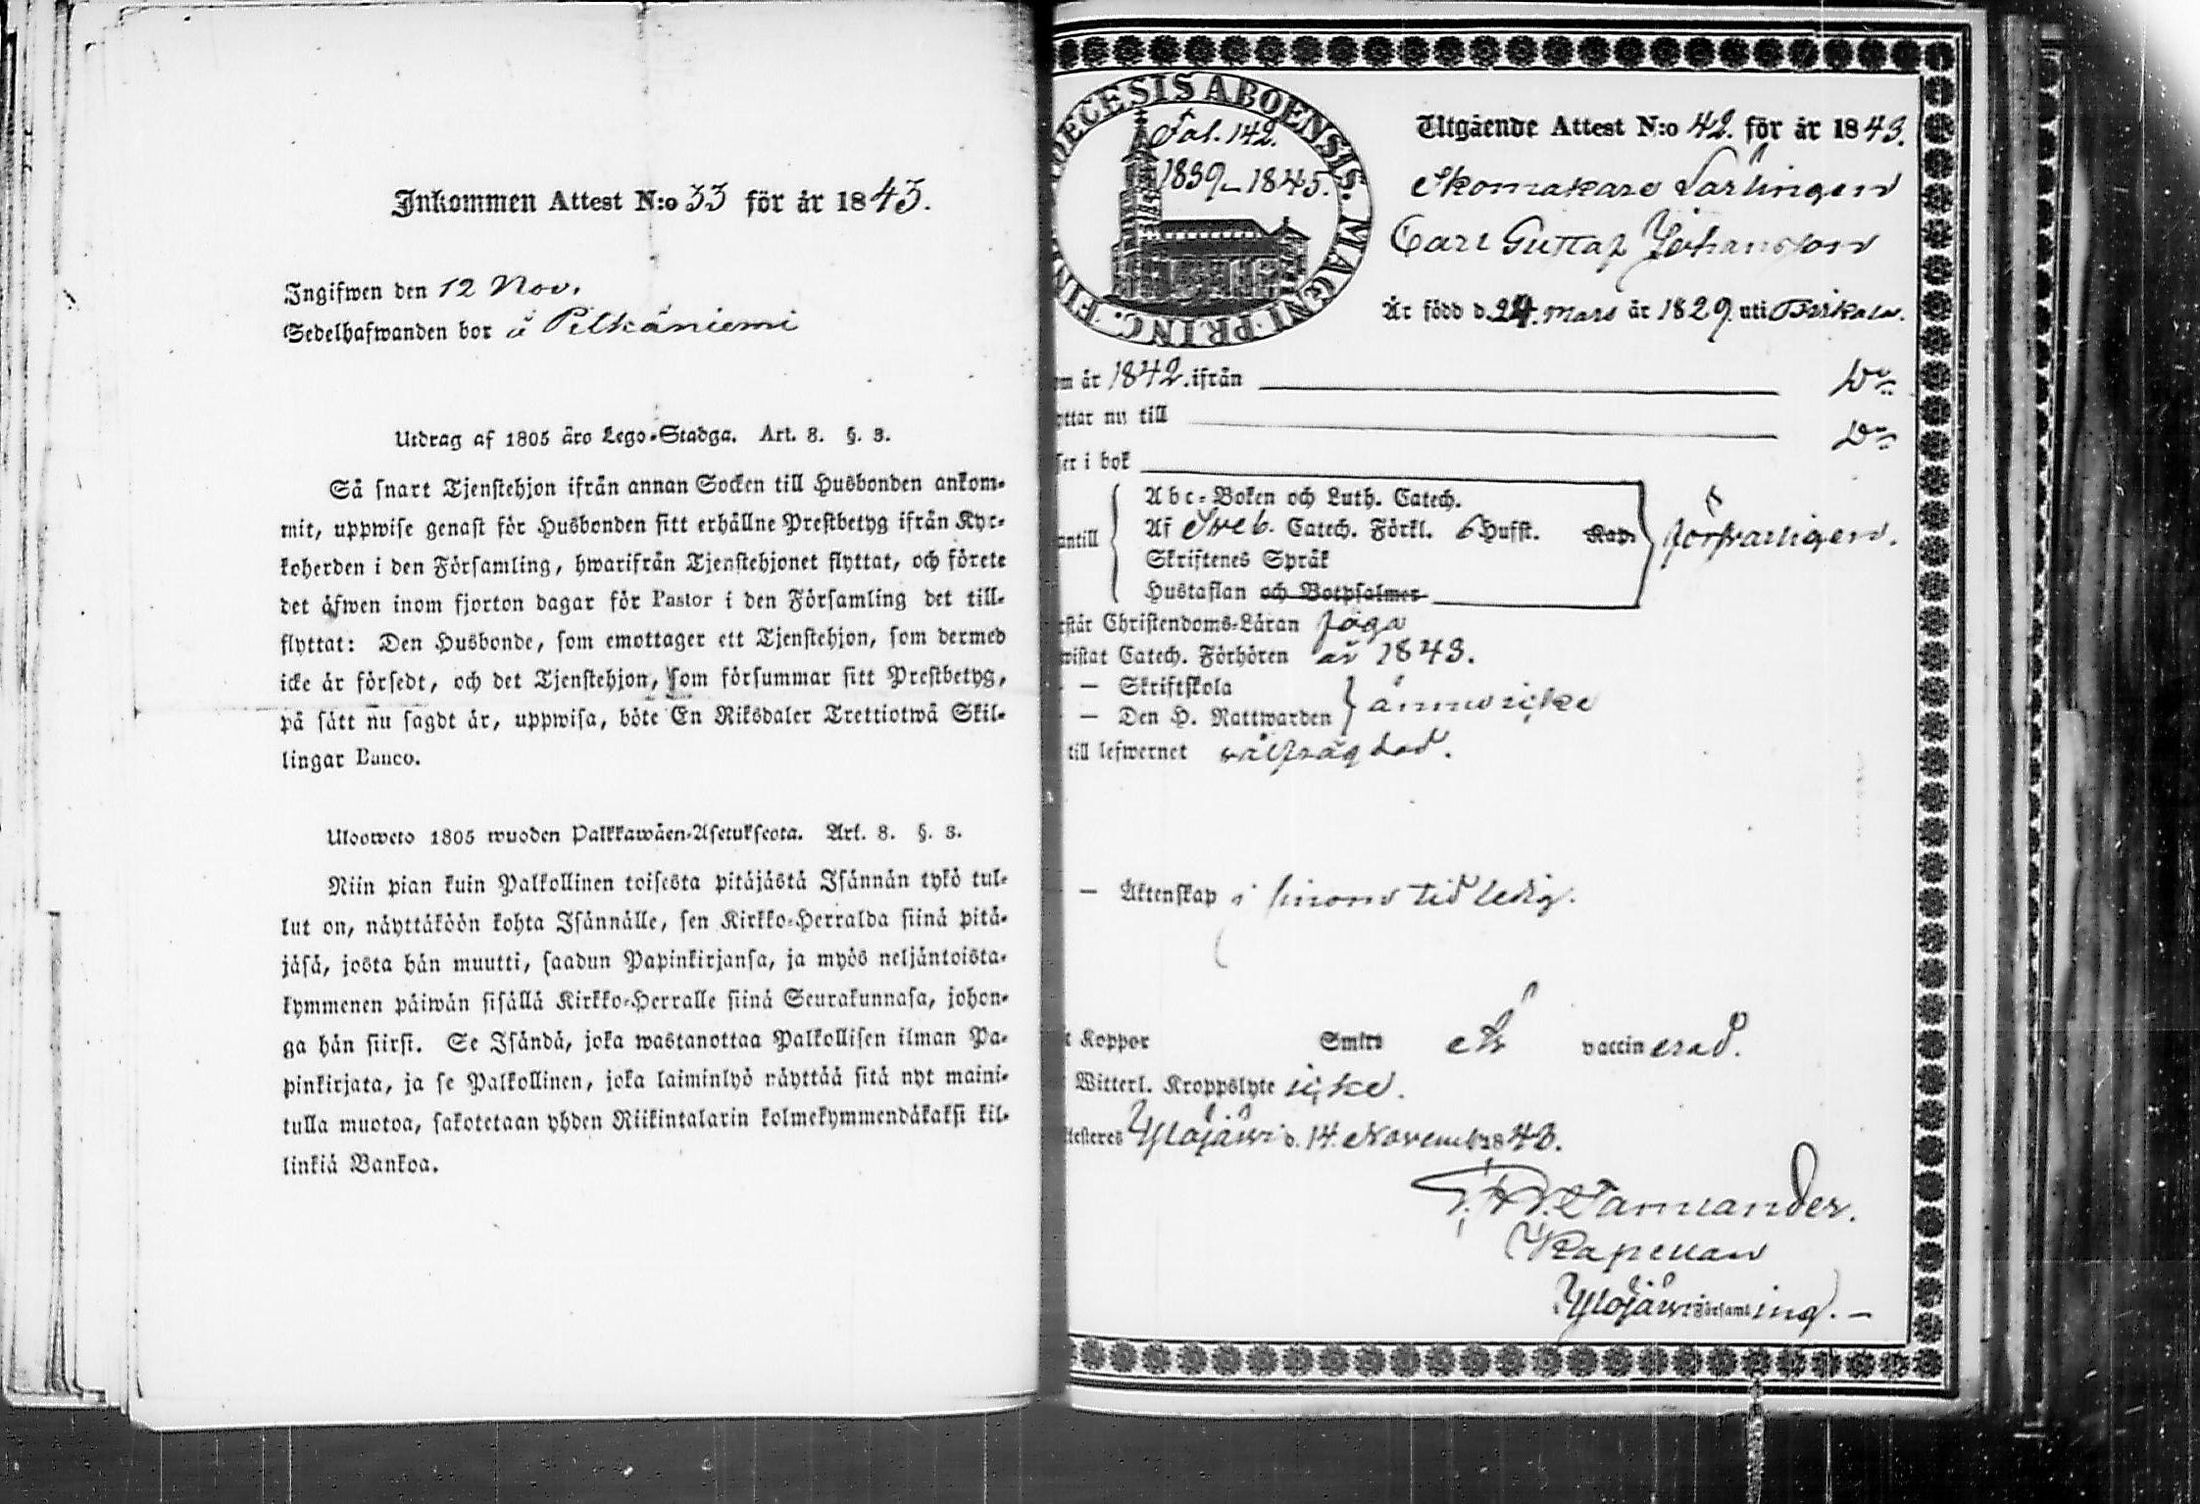 Inkommen Attest N:o 33 för år 1843.
Ingifwen den 12 Nov.
Sedelhafwanden bor å Pilkäniemi
Utdrag af 1805 åro Lego-Stadga. Art. 8. §. 3.
Så snart Tjenstehjon ifrån annan Socken till Husbonden ankom-
mit, uppwise genast för Husbonden sitt erhållne Prestbetyg ifrån Kyr-
koherden i den Församling, hwarifrån Tjenstehjonet flyttat, och förete
det äfwen inom fjorton dagar för Pastor i den Församling det till-
flyttat: Den Husbonde, som emottager ett Tjenstehjon, som dermed
icke är försedt, och det Tjenstehjon, som försummar sitt Prestbetyg,
på sätt nu sagdt är, uppwisa, böte En Riksdaler Trettiotwå Skil-
lingar Banco.
Ulosweto 1805 wuoden Palkkawäen-Asetuksesta. Art. 8. §. 3.
Niin pian kuin Palkollinen toisesta pitäjästä Isännän tykö tul-
lut on, näyttäköön kohta Isännälle, sen Kirkko-Herralda siinä pitä-
jäsä, josta hän muutti, saadun Papinkirjansa, ja myös neljäntoista-
kymmenen päiwän sisällä Kirkko-Herralle siinä Seurakunnasa, johon-
ga hän siirsi. Se Isändä, joka wastanottaa Palkollisen ilman Pa-
pinkirjata, ja se Palkollinen, joka laiminlyö näyttää sitä nyt maini-
tulla muotoa, sakotetaan yhden Riikintalarin kolmekymmendäkaksi kil-
linkiä Bankoa.
DECESIS ABOENSIS. MAGNI PRINC. FIN
Fol. 142.
1839-1845.
Utgående Attest N:o 42. för år 1843.
Skomakare Lärlingen
Carl Gustaf Johansson
Är född d. 24. Mars år 1829. uti Birkala.
om år 1842. ifrån Do
yttar nu till Do
ser i bok
Abc-Boken och Luth. Catech.
antill Af Sweb. Catech. Förkl. 6 Hufst. Kap. försvarligen.
Skriftenes Språk
Hustaflan och Botpsalmer
rstår Christendoms-Läran föga
wistat Catech. Förhören år 1843.
— Skriftskola
— Den H. Nattwarden ännu icke
till lefwernet välfrägdad.
— Äktenskap i sinom tid ledig.
Koppor Smitt vaccinerad.
Witterl. Kroppslyte icke.
ttesteres Ylöjärvi d. 14. November 1843.
Tammander.
Kapellan
i Ylöjärvi Församling. —